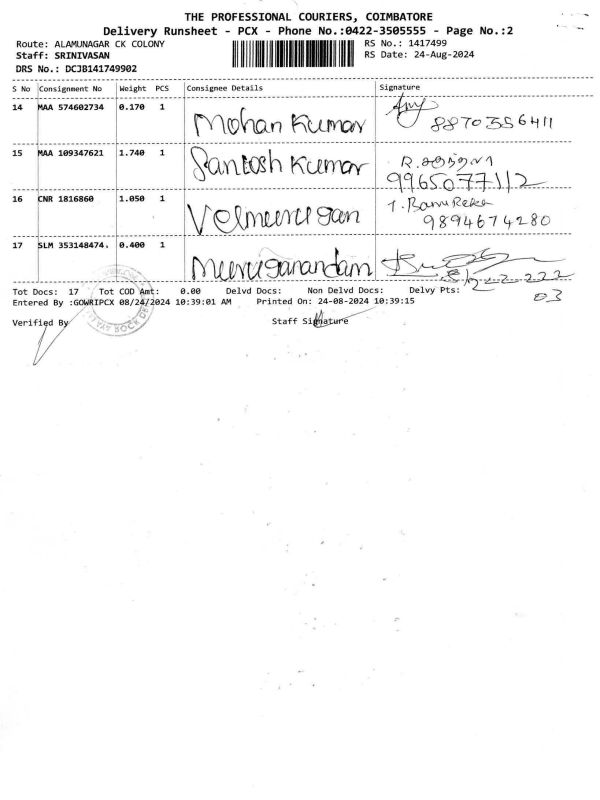 THE PROFESSIONAL COURIERS, COIMBATORE
Delivery Runsheet - PCX - Phone No.:0422-3505555 - Page No.:2
Route: ALAMUNAGAR CK COLONY RS No.: 1417499
Staff: SRINIVASAN RS Date: 24-Aug-2024
DRS No.: DCJB141749902
S No Consignment No Weight PCS Consignee Details Signature
14 MAA 574602734 0.170 1 Mohan Kumar 8870356411
15 MAA 109347621 1.740 1 Santosh Kumar R.
9965077112
16 CNR 1816860 1.050 1 Velmurugan T. Banu Reka
9894674280
17 SLM 353148474. 0.400 1 Muruganandam
Tot Docs: 17 Tot COD Amt: 0.00 Delvd Docs: Non Delvd Docs: Delvy Pts:
03
Entered By :GOWRIPCX 08/24/2024 10:39:01 AM Printed On: 24-08-2024 10:39:15
Verified By Staff Signature